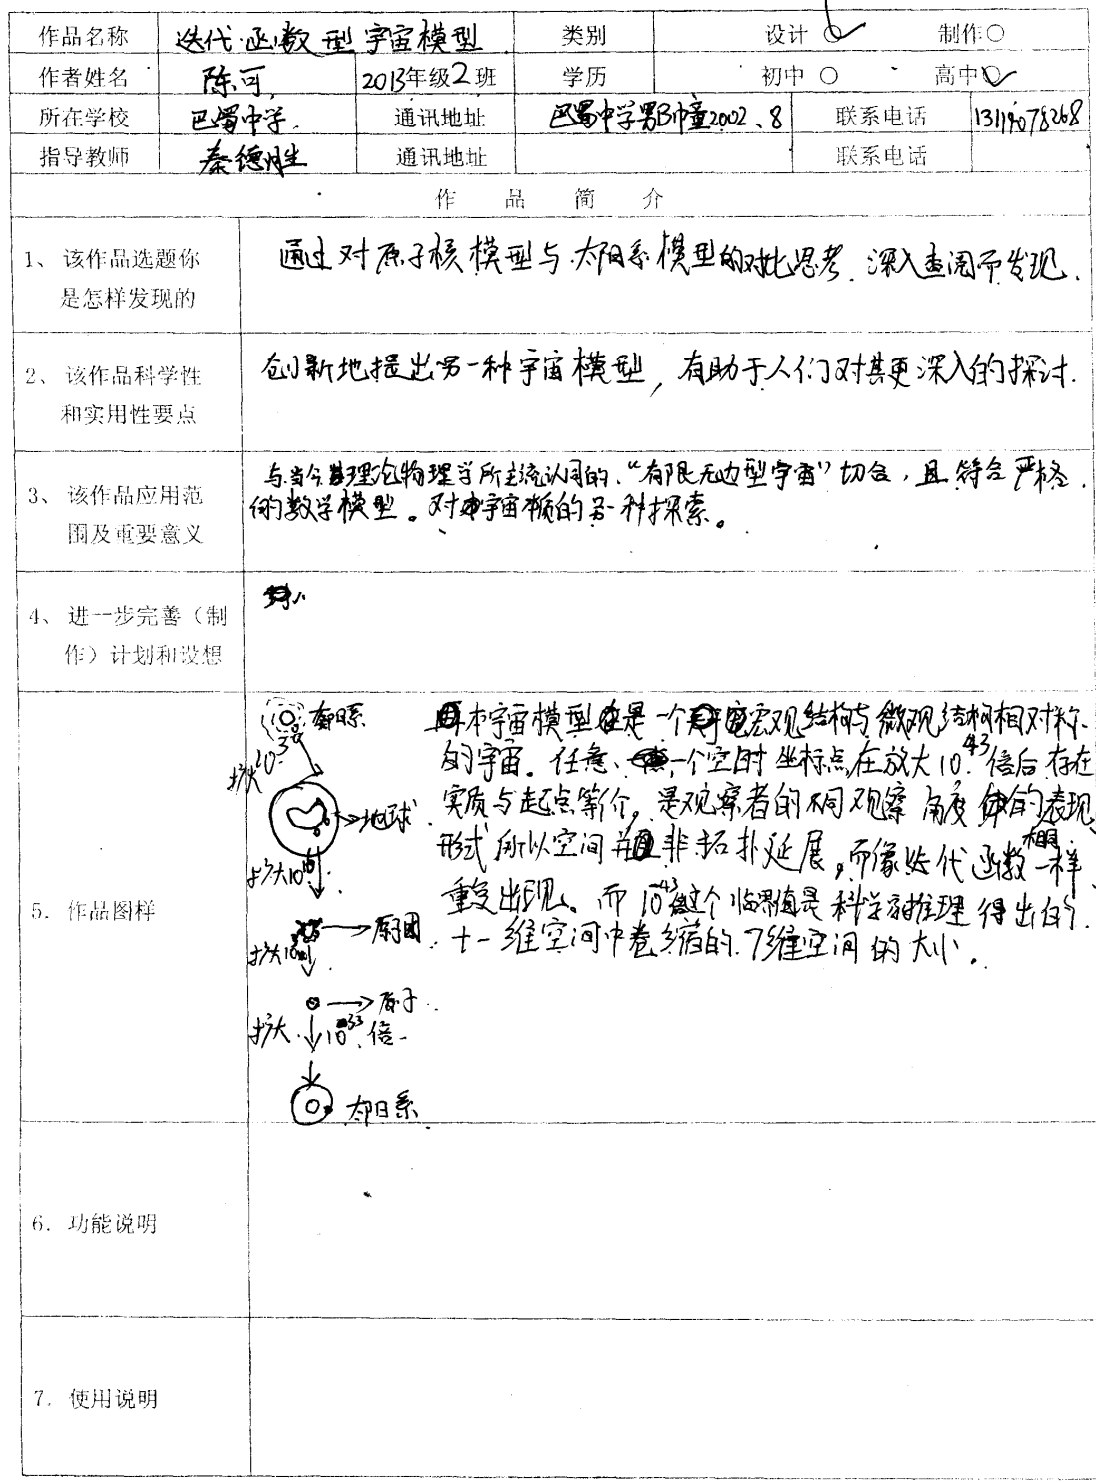 作品名称 迭代函数型宇宙模型 类别 设计○ 制作○
作者姓名 陈可 2013年级2班 学历 初中○ 高中○
所在学校 巴蜀中学. 通讯地址 巴蜀中学男 2002、8 联系电话
指导教师 秦德胜 通讯地址 联系电话
作品简介
1、该作品选题你
是怎样发现的
通过对原子核模型与太阳系模型的对比思考.深入查阅而发现.
2、该作品科学性
和实用性要点
创新地提出另一种宇宙模型,有助于人们对其更深入的探讨.
3、该作品应用范
围及重要意义
与当今理论物理学所主流认同的、“有限无边型宇宙”切合,且符合严格
的数学模型。对宇宙的另一种探索。
4、进一步完善(制
作)计划和设想
5.作品图样
本宇宙模型是一个宏观结构与微观结构相对称
的宇宙。任意一个空时坐标点,在放大10⁴³倍后存在
实质与起点等价,是观察者的不同观察角度的表现
形式所以空间并非拓扑延展,而像迭代函数一样
重复出现。而10⁻⁴³这个临界值是科学推理得出的
十一维空间中卷缩的7维空间的大小.
太阳系
扩大
地球
扩大10
原子团
扩大10
原子
扩大10³³倍
太阳系
6.功能说明
7.使用说明